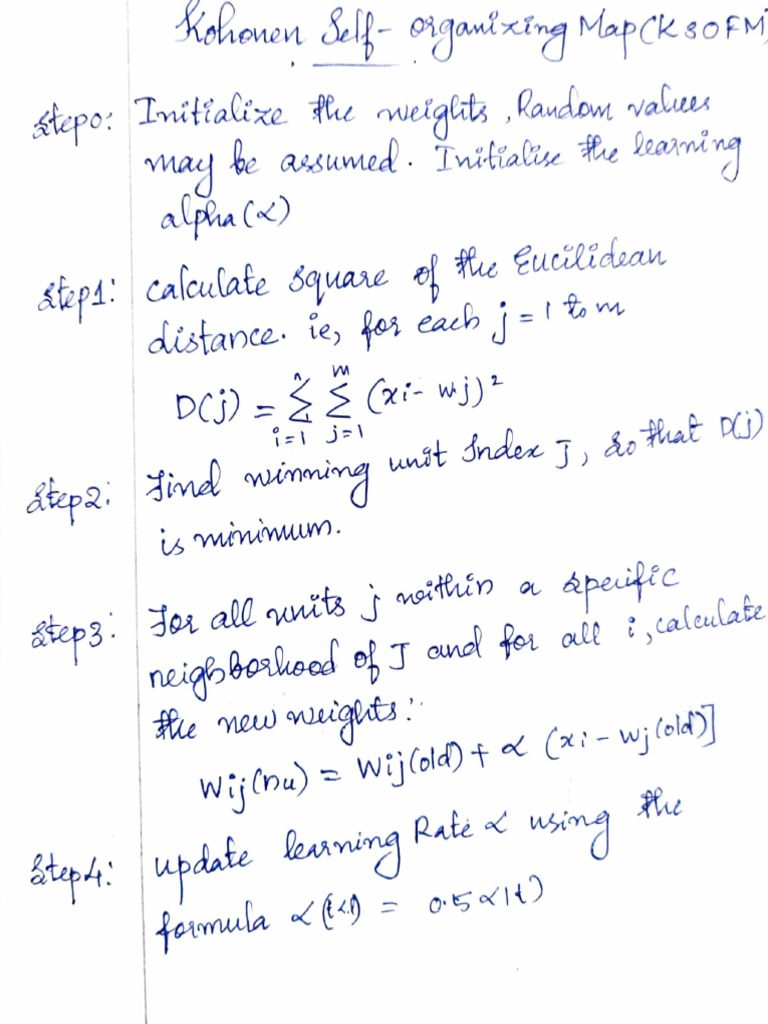 Kohonen Self-organizing Map(KSOFM)
Step0: Initialize the weights, Random values
may be assumed. Initialise the learning
alpha(α)
Step1: calculate square of the Eucilidean
distance. ie, for each j = 1 to m
D(j) = n∑i=1 m∑j=1 (xi - wj)²
Step2: Find winning unit Index J, so that D(j)
is minimum.
Step3: For all units j within a specific
neighborhood of J and for all i, calculate
the new weights:
Wij(nu) = Wij(old) + α (xi - wj(old)]
Step4: update learning Rate α using the
formula α = 0.5α